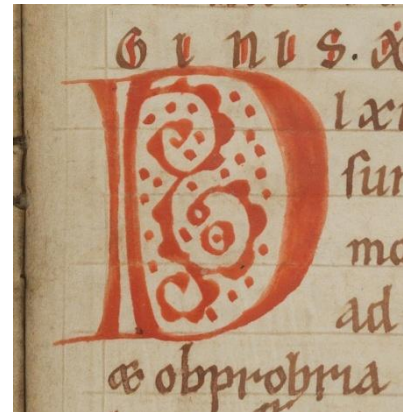 GINIS. &
D
læ
sun
mo
ad
& obprobria